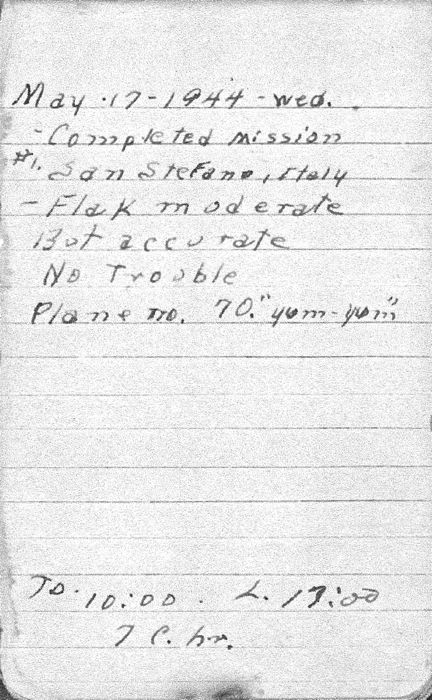 May·17-1944-wed.
-Completed mission
#1. San Stefano, Italy
-Flak moderate
But accurate
No Trouble
Plane no. 70. "yum-yum"
TO. 10:00. L. 17:00
7 C. hr.